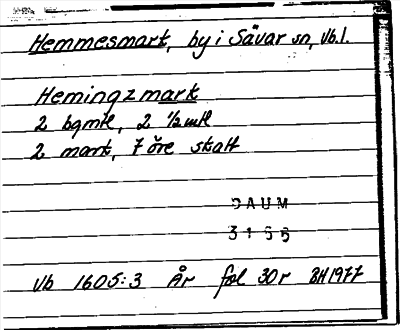 Hemmesmark, by i Sävar sn, Vb.l.
Hemingzmark
2 bgmtl, 2 ½ mtl
2 mant, 7 öre skatt
DAUM
3155
Vb 1605:3 År fol 30 r BH 1977